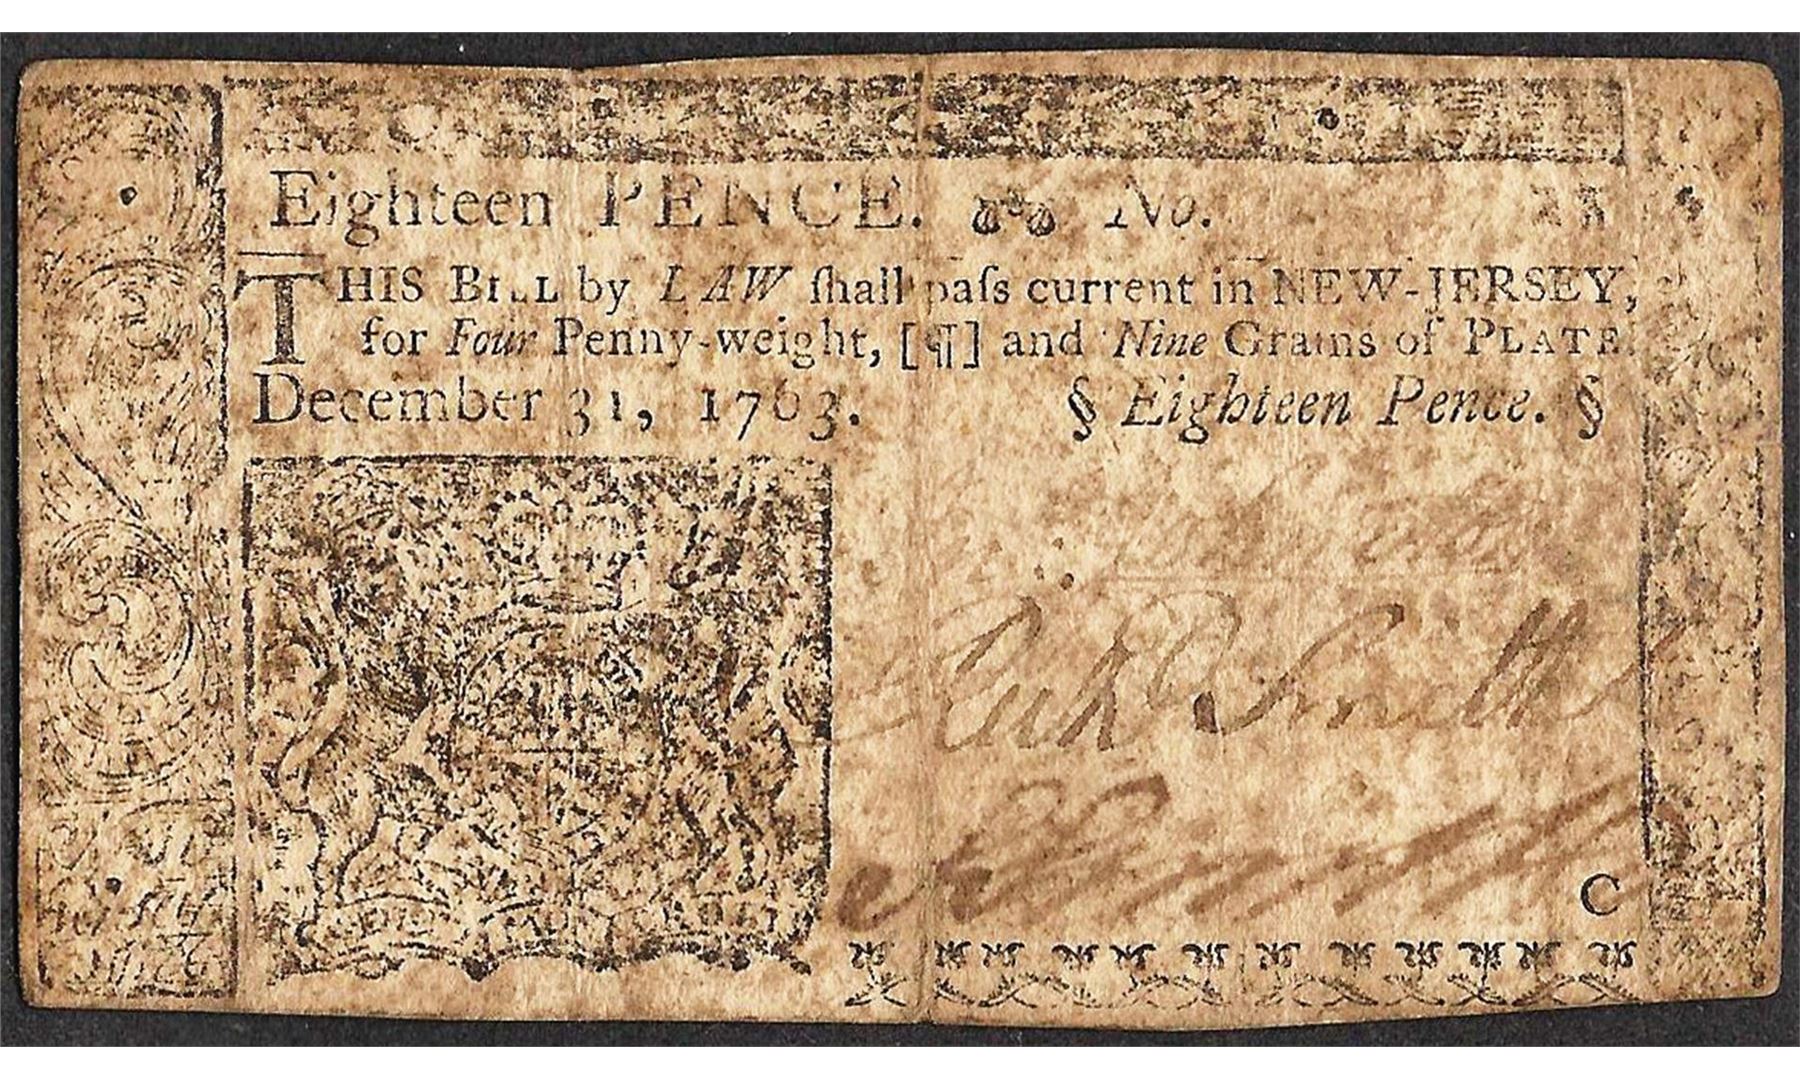 Eighteen PENCE. No.
THIS BILL by LAW ſhall paſs current in NEW-JERSEY,
for Four Penny-weight, [¶] and Nine Grains of PLATE.
December 31, 1763. § Eighteen Pence. §
Richd Smith
C